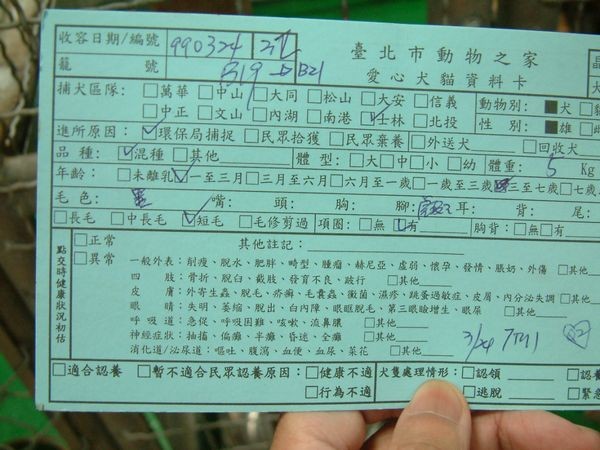 收容日期/編號 990324 臺北市動物之家
籠號 B19→B21 愛心犬貓資料卡
捕犬區隊: □萬華 □中山 □大同 □松山 □大安 □信義 動物別: ■犬
□中正 □文山 □內湖 □南港 ☑士林 □北投 性別: ■雄
進所原因: ☑環保局捕捉 □民眾拾獲 □民眾棄養 □外送犬 □回收犬
品種: ☑混種 □其他 體型: □大□中□小□幼 體重: 5 Kg
年齡: □未離乳 ☑一至三月□三月至六月□六月至一歲□一歲至三歲 三至七歲
毛色: 黑 嘴: 頭: 胸: 腳: 耳: 背: 尾:
□長毛 □中長毛 ☑短毛 □毛修剪過 項圈: □無 ☑有 胸背: □無□有
點交時健康狀況初估
□正常 其他註記:
□異常 一般外表: 削瘦、脫水、肥胖、畸型、腫瘤、赫尼亞、虛弱、懷孕、發情、脹奶、外傷 □其他
四肢: 骨折、脫臼、截肢、發育不良、跛行 □其他
皮膚: 外寄生蟲、脫毛、疥癬、毛囊蟲、黴菌、濕疹、跳蚤過敏症、皮屑、內分泌失調 □其他
眼睛: 失明、萎縮、脫出、白內障、眼眶脫毛、第三眼瞼增生、眼屎 □其他
呼吸道: 急促、呼吸困難、咳嗽、流鼻膿 □其他
神經症狀: 抽搐、偏癱、半癱、昏迷、全癱 □其他
消化道/泌尿道: 嘔吐、腹瀉、血便、血尿、菜花 □其他
3/24
□適合認養 □暫不適合民眾認養原因: □健康不適 犬隻處理情形: □認領
□行為不適 □逃脫